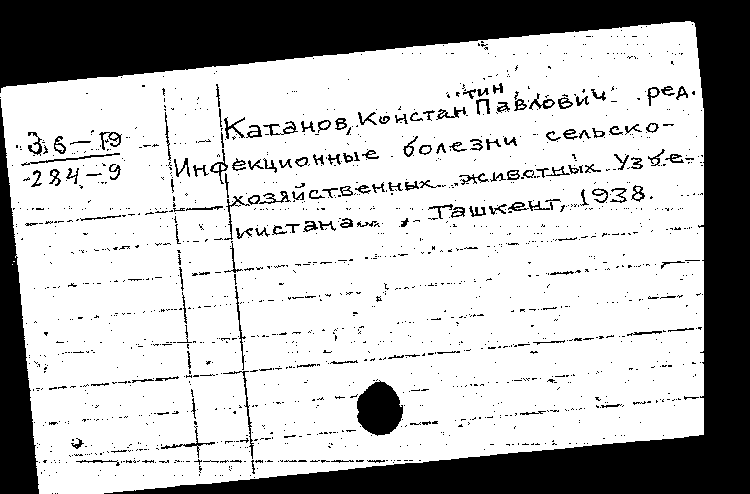 36-19
284-9
Катанов, Константин Павлович ред.
Инфекционные болезни сельско-
хозяйственных животных Узбе-
кистана... , Ташкент, 1938.